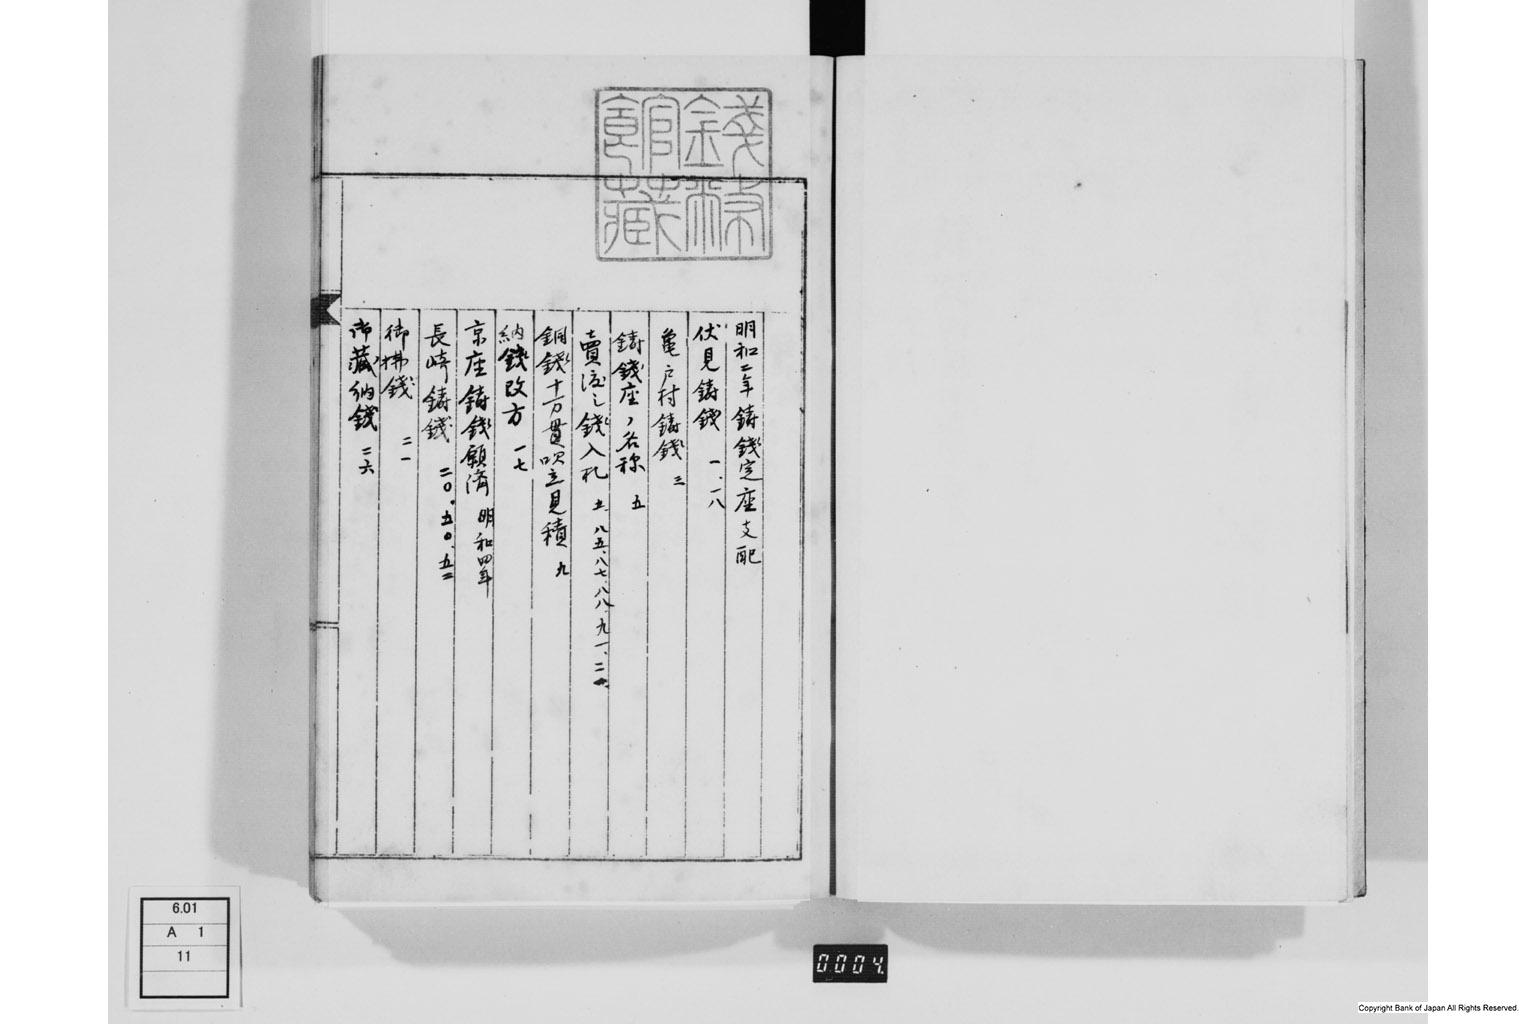 錢幣館藏
明和二年鋳錢定座支配
伏見鋳錢 一、一八
亀戸村鋳錢 三
鋳錢座ノ名称 五
賣渡之錢入札 五、八五、八七、八八、九一、二
銅錢十万貫吹立見積 九
納錢改方 一七
京座鋳錢願済 明和四年
長崎鋳錢 二〇、五〇、五二
御拂錢 二一
御藏納錢 二六
6.01
A 1
11
0004
Copyright Bank of Japan All Rights Reserved.